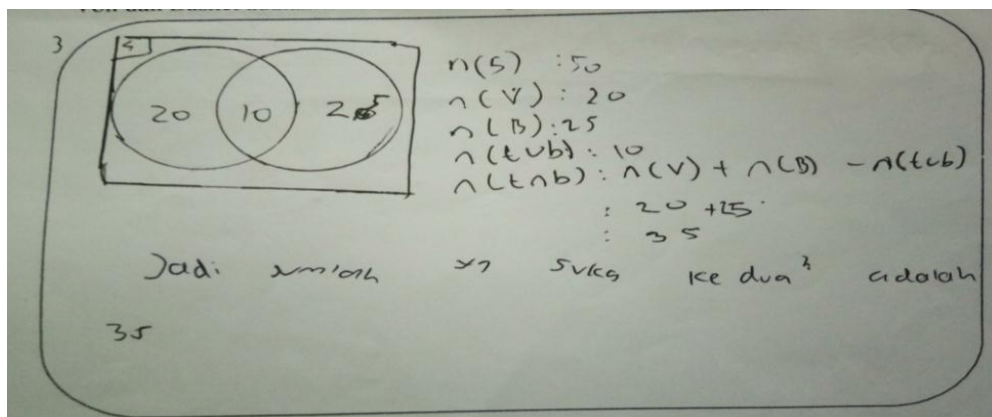 3
S
20 10 25
n(S) : 50
n(V) : 20
n(B) : 25
n(t∪b) : 10
n(t∩b) : n(V) + n(B) - n(t∪b)
: 20 + 25
: 35
Jadi jumlah yg suka kedua² adalah
35